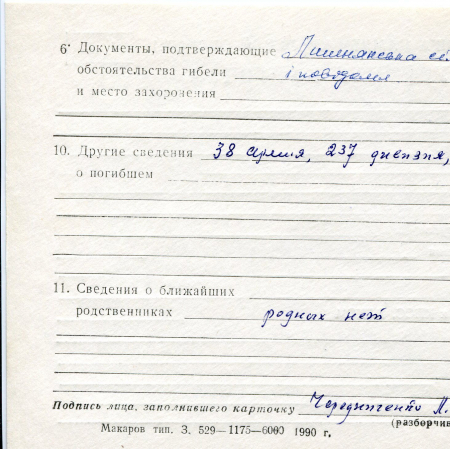 6. Документы, подтверждающие
обстоятельства гибели і повідомл
и место захоронения
10. Другие сведения 38 армия, 237 дивизия,
о погибшем
11. Сведения о ближайших
родственниках родных нет
Подпись лица, заполнившего карточку Чередниченко Л.
(разборчив
Макаров тип. З. 529—1175—6000 1990 г.